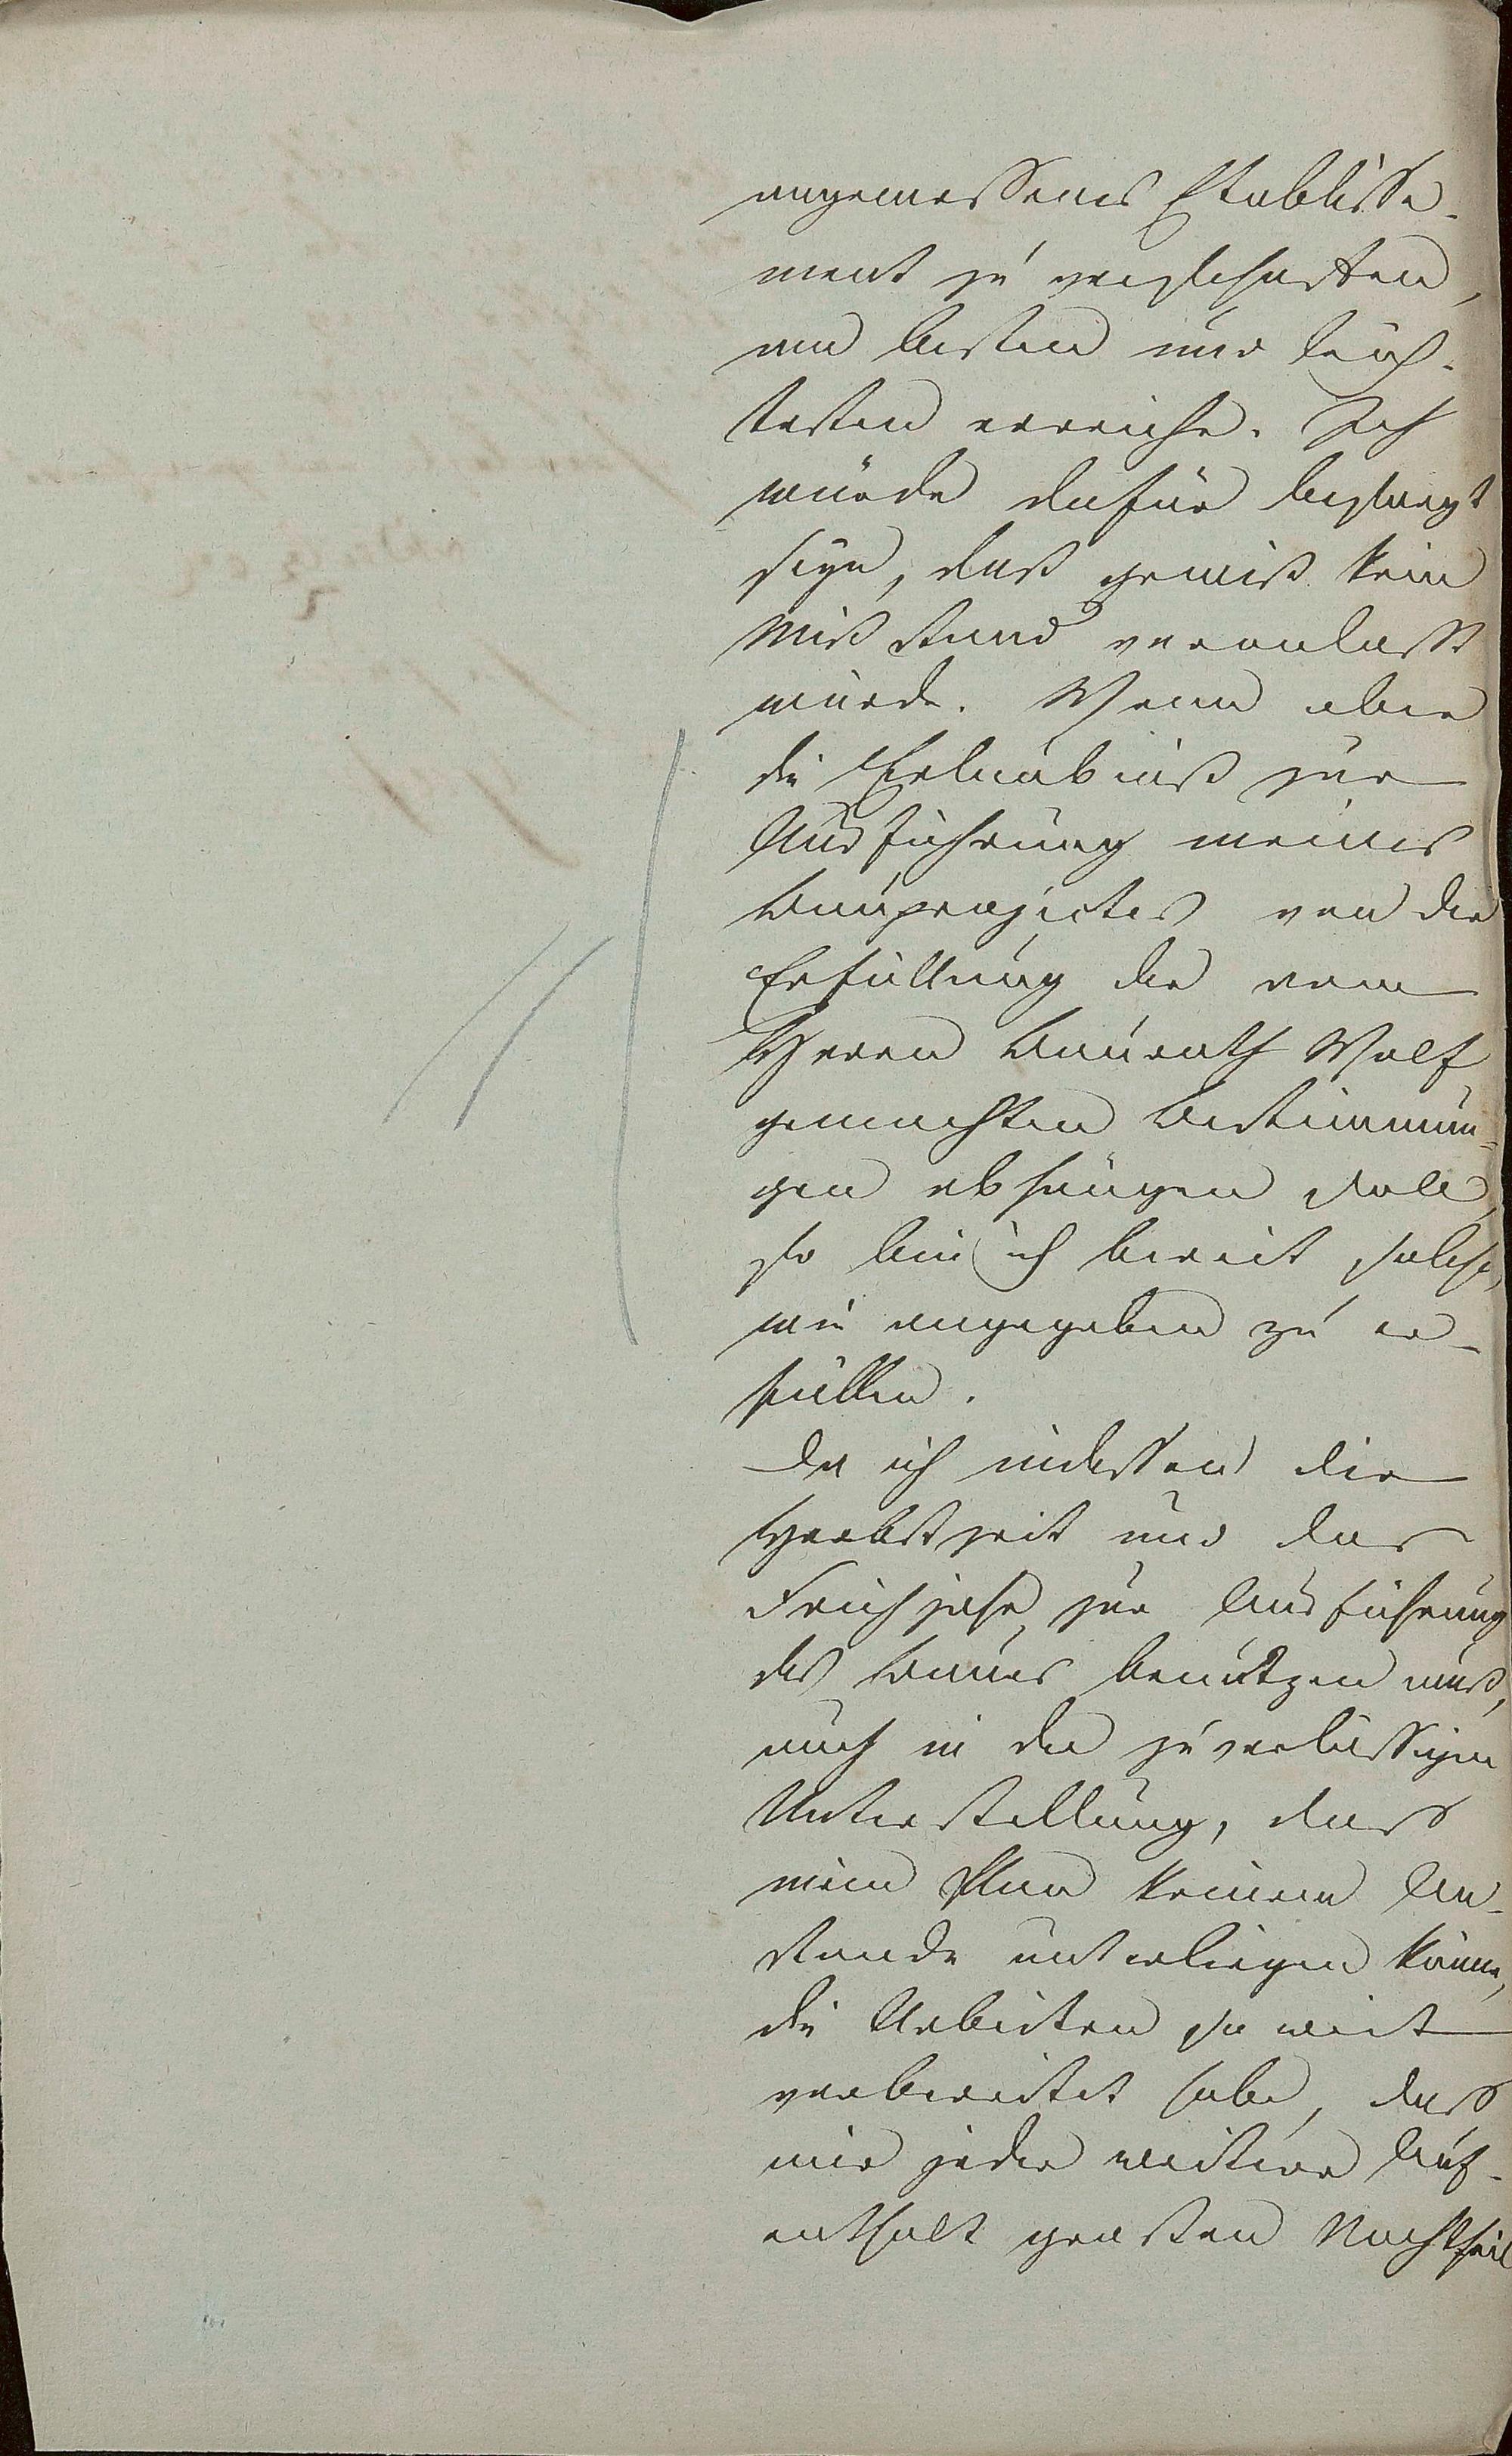 angemessenes Etablisse-
ment zu verschaffen,
am besten und leich-
testen erreiche. Ich
würde dafür besorgt
seyn, daß gewiß kein
Mißstand veranlaßt
würde. Wenn aber
die Erlaubniß zur
Ausführung meines
Bauprojectes von der
Erfüllung der vom
Herrn Baurath Wolf
gemachten Bestimmun-
gen abhängen soll,
so bin ich bereit solche,
wie angegeben zu er-
füllen.
Da ich indessen die
Herbstzeit und das
Frühjahr zur Ausführung
des Baues benützen muß,
auch in der zuverlässigen
Unterstellung, dass
mein Plan keinem An-
stande unterliegen könne,
die Arbeiten so weit
vorbereitet habe, dass
mir jeder weitere Auf-
enthalt großen Nachtheil